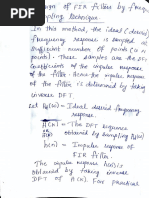 Design of FIR filters by freq.
Sampling Technique:
In this method, the ideal (desired)
frequency response is sampled at
sufficient number of points (i.e. N
points). These samples are the DFT
coefficients of the impulse response
of the filter. Hence the impulse response
of the filter is determined by taking
inverse DFT.
Let Hd(ω) = Ideal desired frequency
response.
H(k) = The DFT sequence
obtained by sampling Hd(ω)
h(n) = Impulse response of
FIR filter.
The impulse response h(n) is
obtained by taking inverse
DFT of H(k). For practical